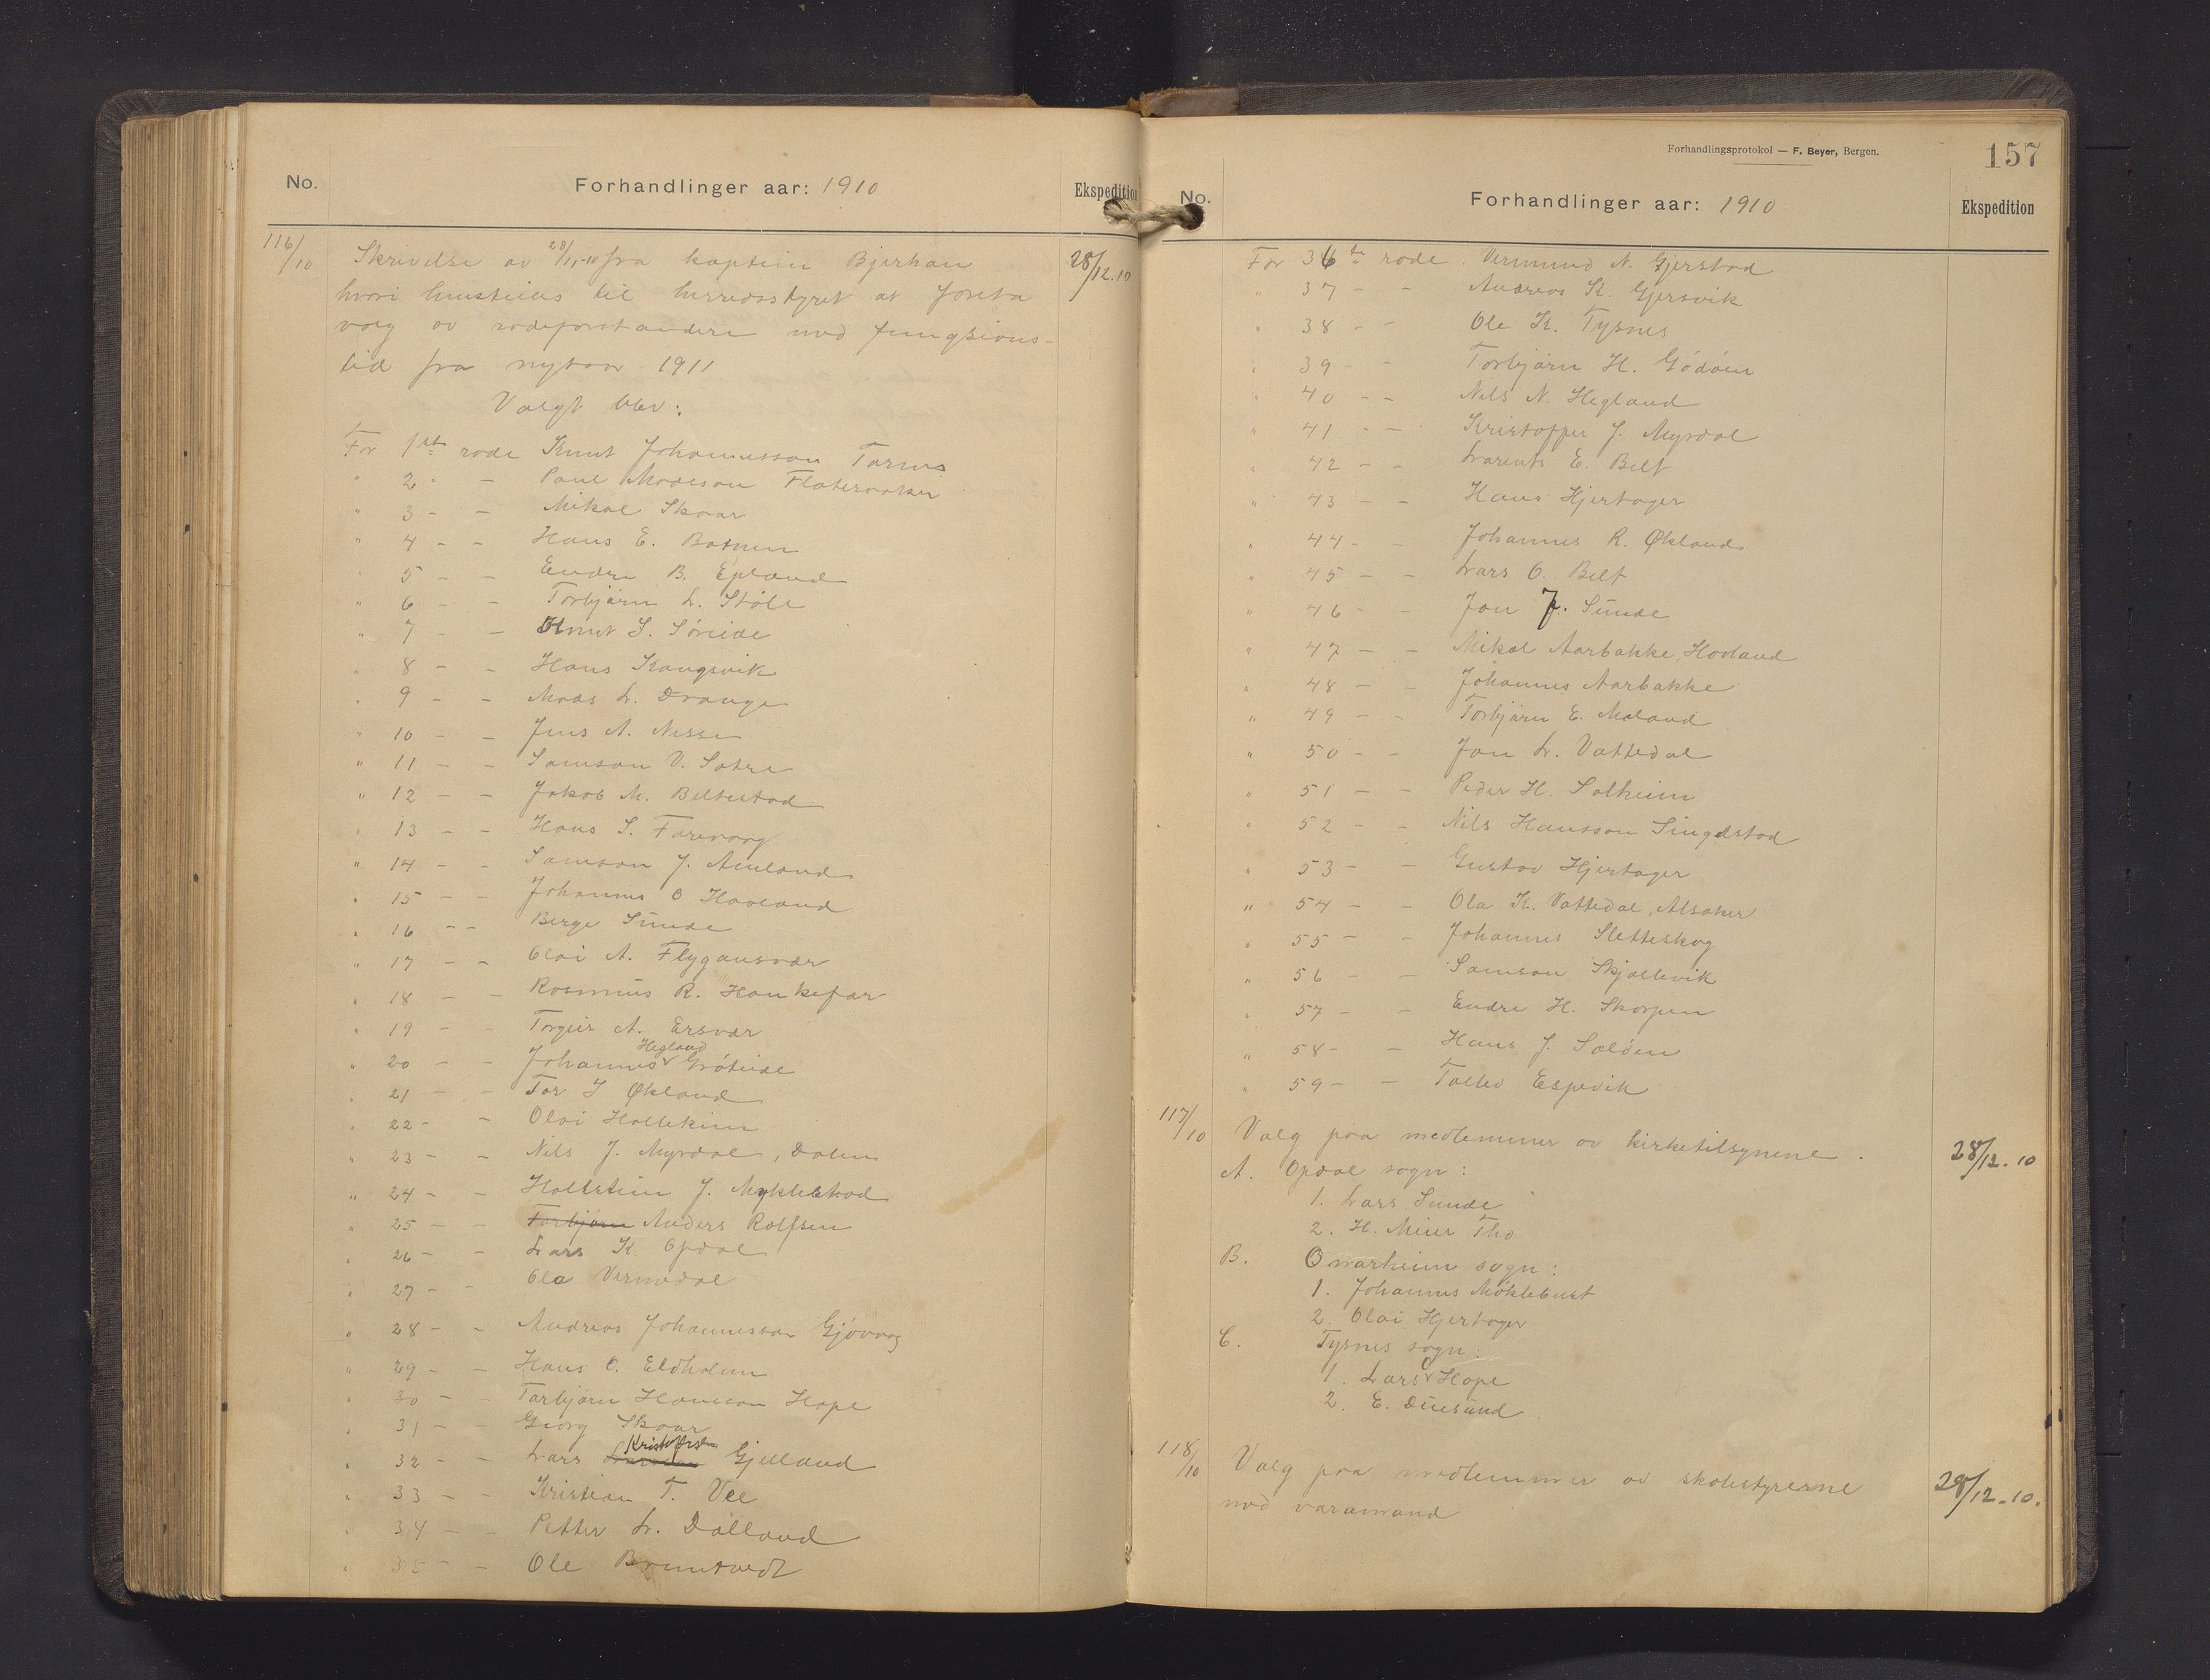 No.
Forhandlinger aar: 1910
Ekspedition
116/10
Skrivelse av 28/11-10 fra kaptein Bjerkan
28/12.10
hvori henstilles til herredsstyret at foreta
valg av rodeforstandere med fungsions-
tid fra nytaar 1911
Valgt blev:
For 1ste rode Knut Johannesson Tornes
" 2 - - Paul Madsson Flateraaker
" 3 - - Mikal Skaar
" 4 - - Hans E. Batnen
" 5 - - Endre B. Epland
" 6 - - Torbjørn L. Støle
" 7 - - Knut S. Søreide
" 8 - - Hans Kaugsvik
" 9 - - Mads L. Drange
" 10 - - Jens A. Nesse
" 11 - - Samson V. Satre
" 12 - - Jakob M. Beltestad
" 13 - - Hans S. Færevaag
" 14 - - Samson J. Amland
" 15 - - Johannes O Havland
" 16 - - Berge Sunde
" 17 - - Olai A. Flygansvær
" 18 - - Rasmus R. Haukefær
" 19 - - Torgeir A. Ersvær
" 20 - - Johannes Hegland Grøteide
" 21 - - Tor J Økland
" 22 - - Olai Hallekim
" 23 - - Nils J. Myrdal, Dalen
" 24 - - Hallstein J. Myklestad
" 25 - - Torbjørn Anders Rolfsen
" 26 - - Lars K. Opdal
" 27 - - Ola Vermedal
" 28 - - Andreas Johannesson Gjøvaag
" 29 - - Hans O. Eldholm
" 30 - - Torbjørn Hansson Hope
" 31 - - Georg Skaar
" 32 - - Lars Kristoffersen Gjelland
" 33 - - Kristian T. Vee
" 34 - - Petter L. Dalland
" 35 - - Ole Bruntvedt
Forhandlingsprotokol — F. Beyer, Bergen.
157
No.
Forhandlinger aar: 1910
Ekspedition
For 36te rode. Vermund N. Gjerstad
" 37 - - Andreas K. Gjersvik
" 38 - - Ole K. Tysnes
" 39 - - Torbjørn H. Gødøen
" 40 - - Nils N. Hegland
" 41 - - Kristoffer J. Myrdal
" 42 - - Larents E. Belt
" 43 - - Hans Hjertager
" 44 - - Johannes R. Økland
" 45 - - Lars O. Belt
" 46 - - Jon J. Sunde
" 47 - - Mikal Aarbakke, Hovland
" 48 - - Johannes Aarbakke
" 49 - - Torbjørn E. Meland
" 50 - - Jon L. Vattedal
" 51 - - Peder H. Solheim
" 52 - - Nils Hansson Singelstad
" 53 - - Gustav Hjertager
" 54 - - Ola K. Vattedal, Alsaker
" 55 - - Johannes Sletteskog
" 56 - - Samson Skjellevik
" 57 - - Endre H. Skorpen
" 58 - - Hans J. Saløen
" 59 - - Tollev Espevik
117/10
Valg paa medlemmer av kirketilsynene.
28/12.10
A. Opdal sogn:
1. Lars Sunde
2. H. Meier Tho
B. Onarheim sogn:
1. Johannes Møklebust
2. Olai Hjertager
C. Tysnes sogn:
1. Lars O Hope
2. E. Duesund
118/10
Valg paa medlemmer av skolestyrerne
28/12.10.
med varamænd